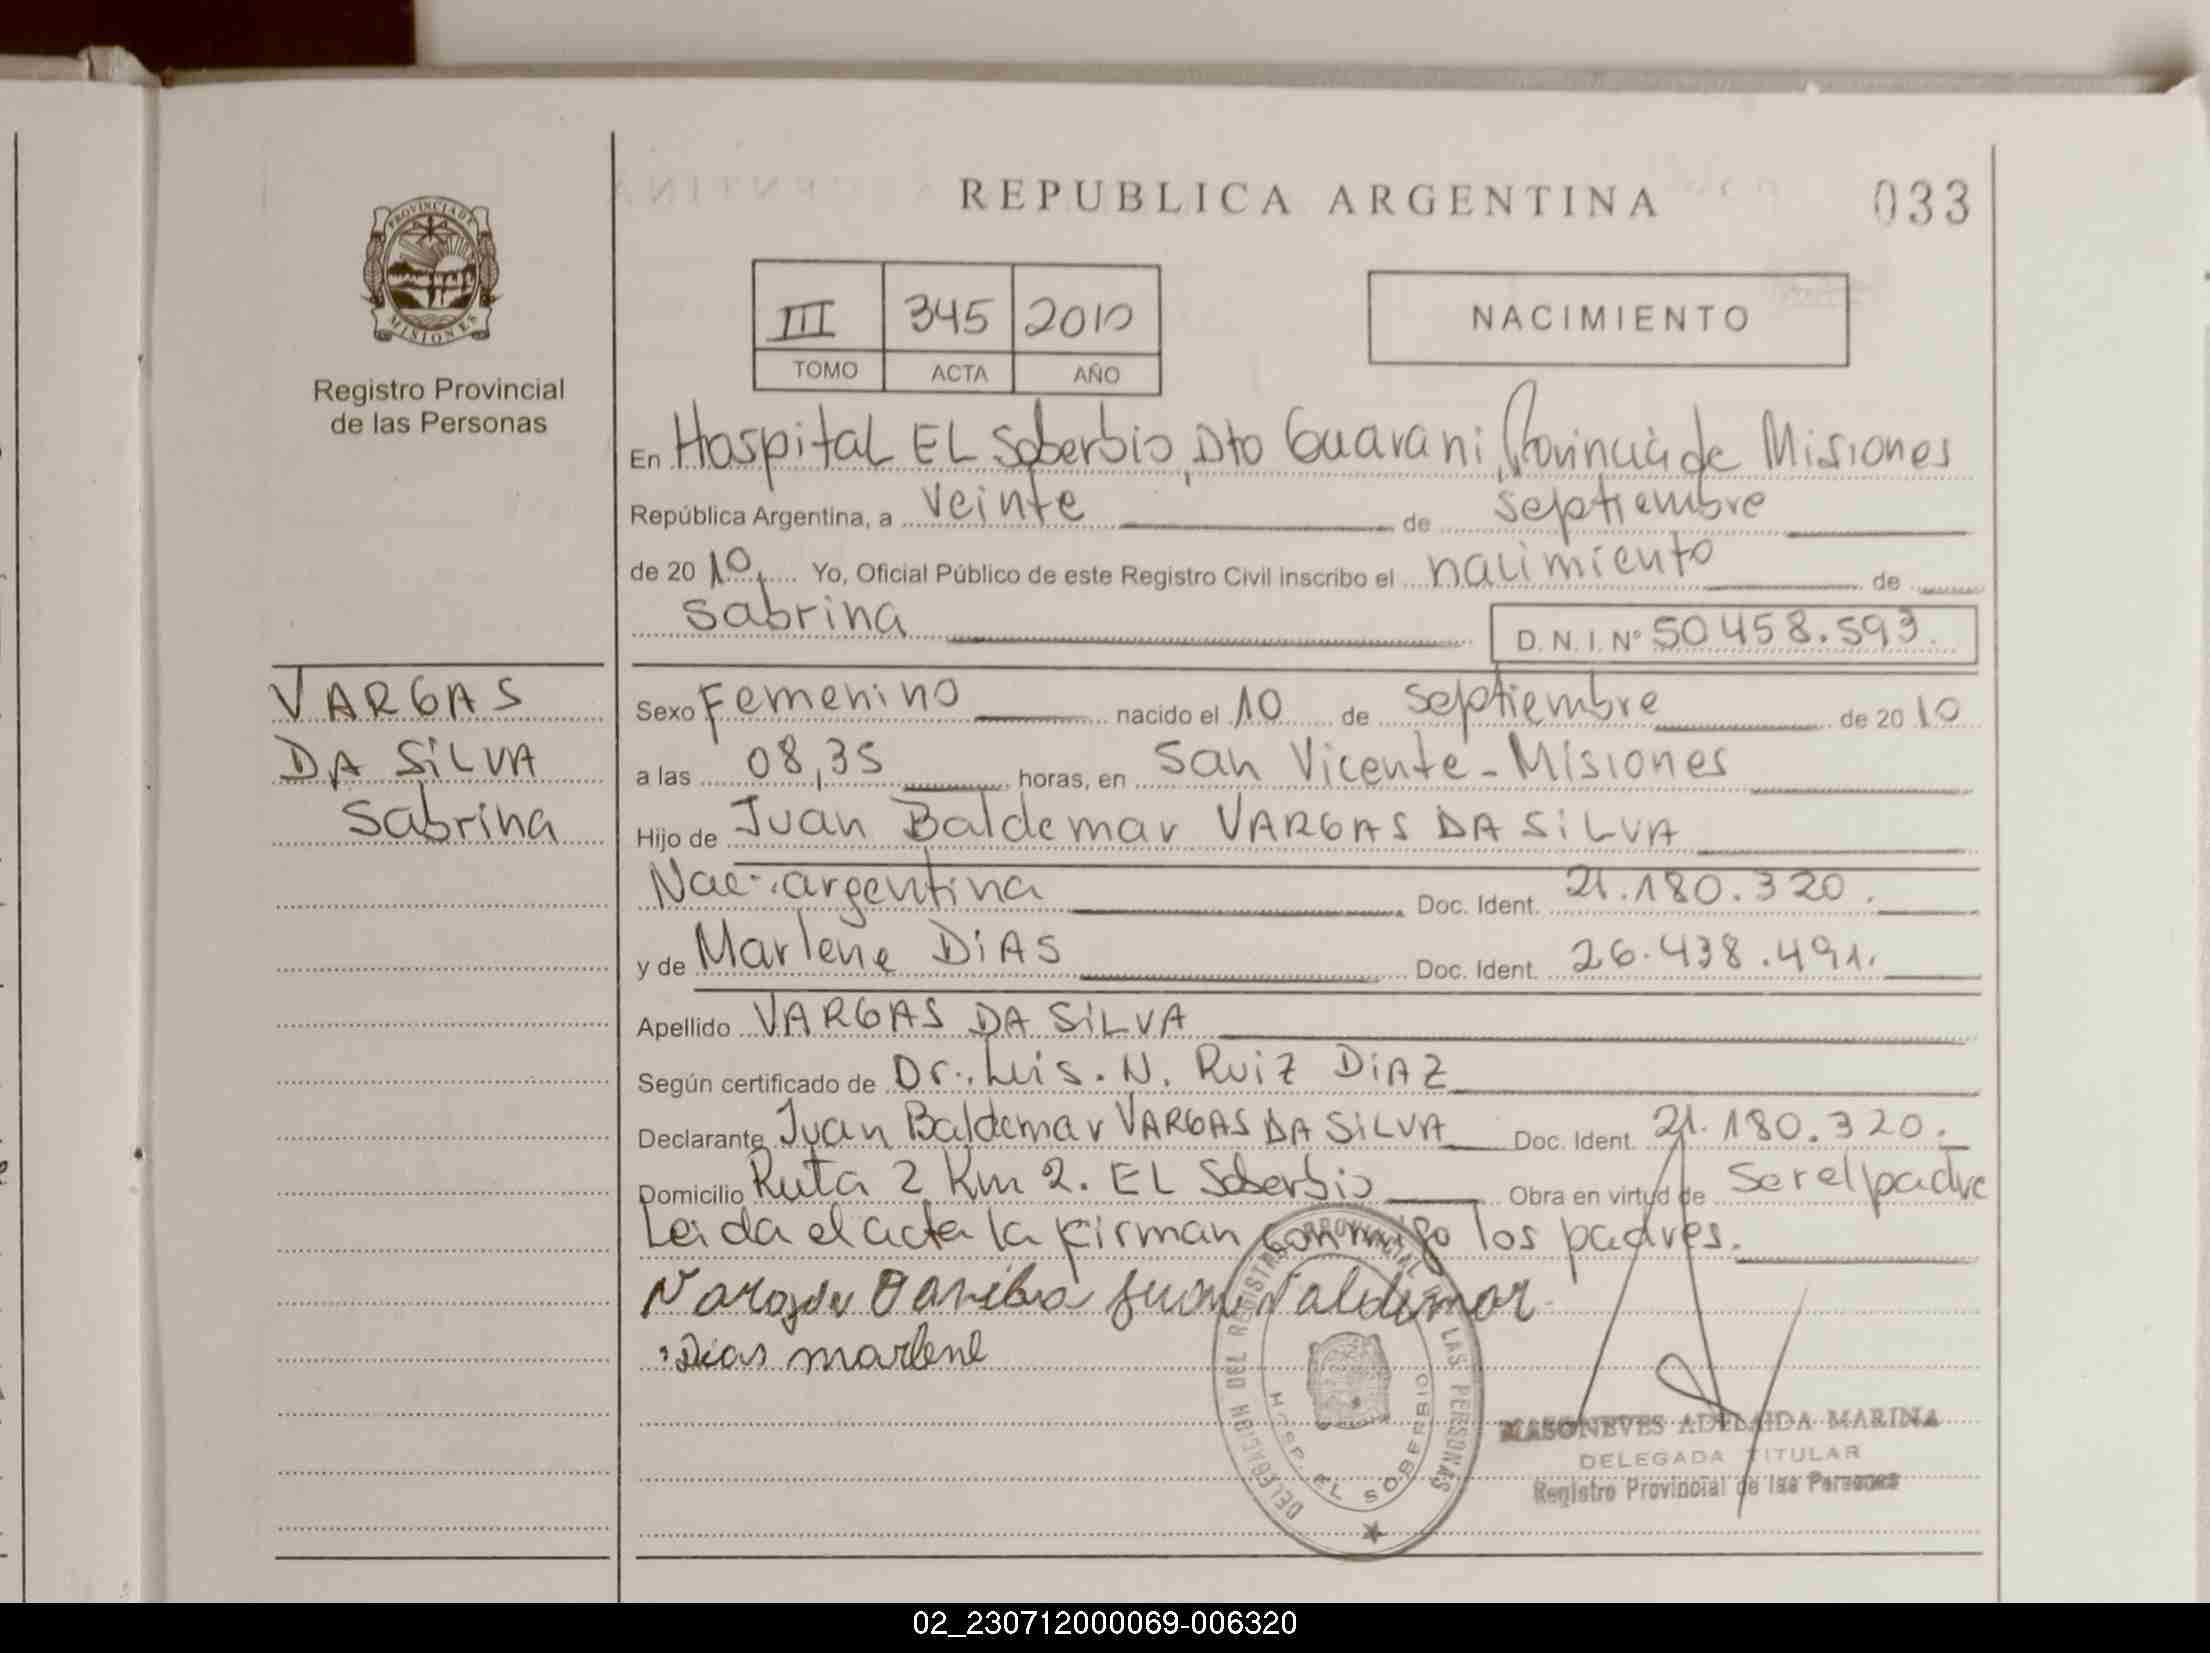 REPUBLICA ARGENTINA
033
PROVINCIA DE
MISIONES
Registro Provincial
de las Personas
III 345 2010
TOMO ACTA AÑO
NACIMIENTO
En Hospital EL Soberbio, Dto Guarani, Provincia de Misiones
República Argentina, a veinte de septiembre
de 2010. Yo, Oficial Público de este Registro Civil inscribo el nacimiento de
Sabrina D. N. I. Nº 50458.593.
VARGAS
DA SILVA
Sabrina
Sexo Femenino nacido el 10 de septiembre de 2010
a las 08,35 horas, en San Vicente - Misiones
Hijo de Juan Baldemar VARGAS DA SILVA
Nac. argentina Doc. Ident. 21.180.320.
y de Marlene DIAS Doc. Ident. 26.438.491.
Apellido VARGAS DA SILVA
Según certificado de Dr. Luis. N. Ruiz DIAZ
Declarante Juan Baldemar VARGAS DA SILVA Doc. Ident. 21.180.320.
Domicilio Ruta 2 Km 2. EL Soberbio Obra en virtud de ser el padre
Leida el acta la firman conmigo los padres.
Dias marlene
DELEGACION DEL REGISTRO PROVINCIAL DE LAS PERSONAS
HOSP. EL SOBERBIO
MASONEVES ADELAIDA MARINA
DELEGADA TITULAR
Registro Provincial de las Personas
02_230712000069-006320